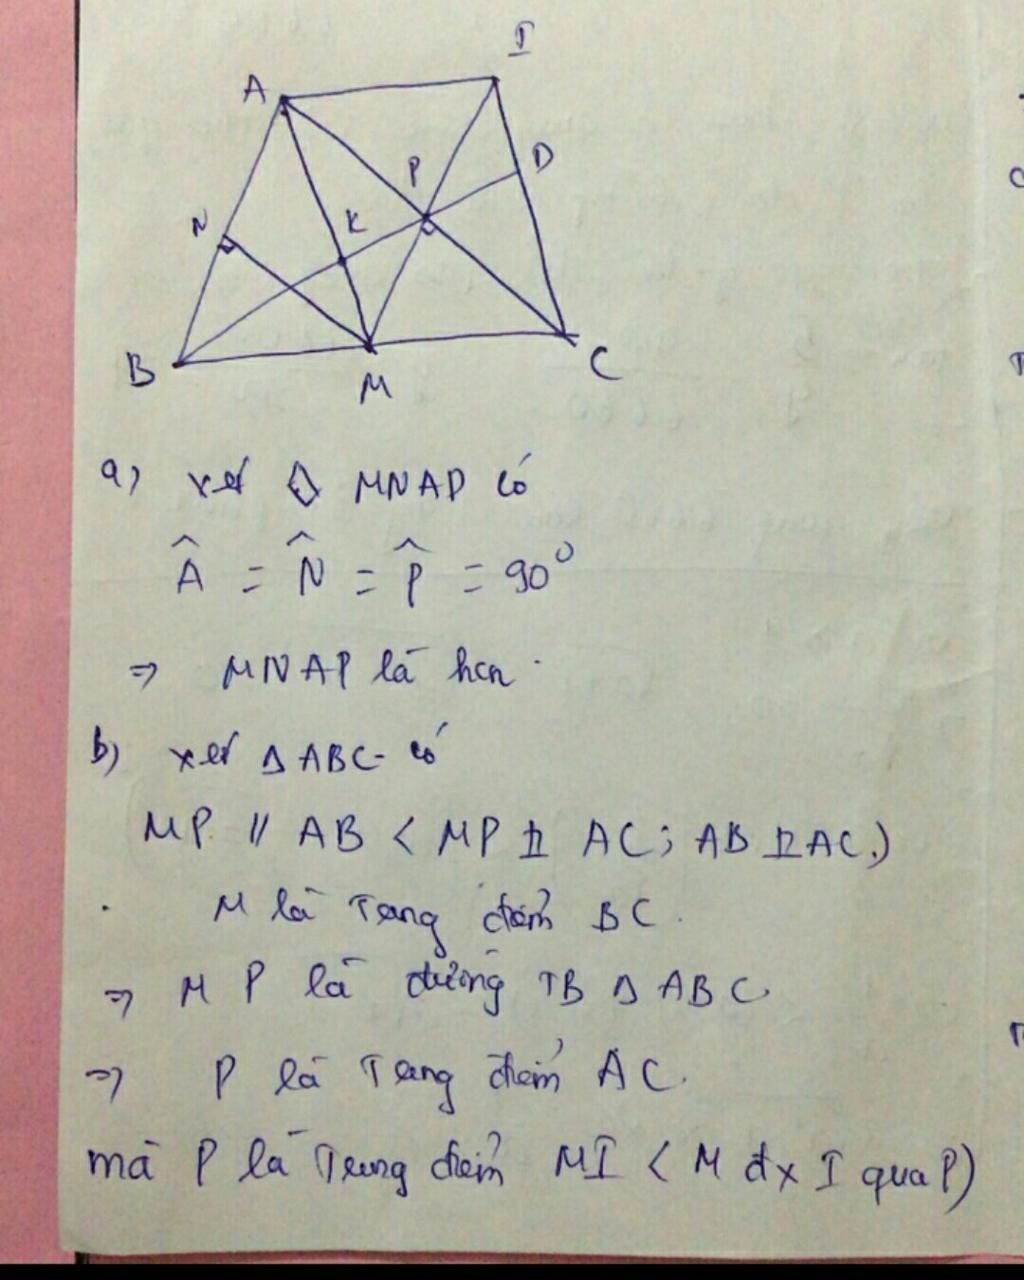 I
A
D
P
N
K
B
M
C
a) xét ◊ MNAP có
Â = N̂ = P̂ = 90°
=> MNAP là hcn.
b) xét Δ ABC có
MP // AB < MP ⊥ AC; AB ⊥ AC)
M là Trung điểm BC.
=> MP là đường TB Δ ABC
=> P là Trung điểm AC.
mà P là Trung điểm MI < M đx I qua P)